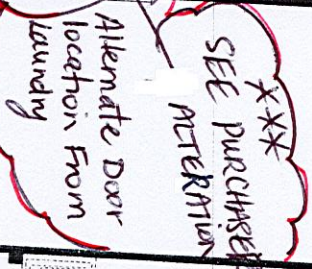 ***
SEE PURCHASER
ALTERATION
Alternate Door
location From
laundry